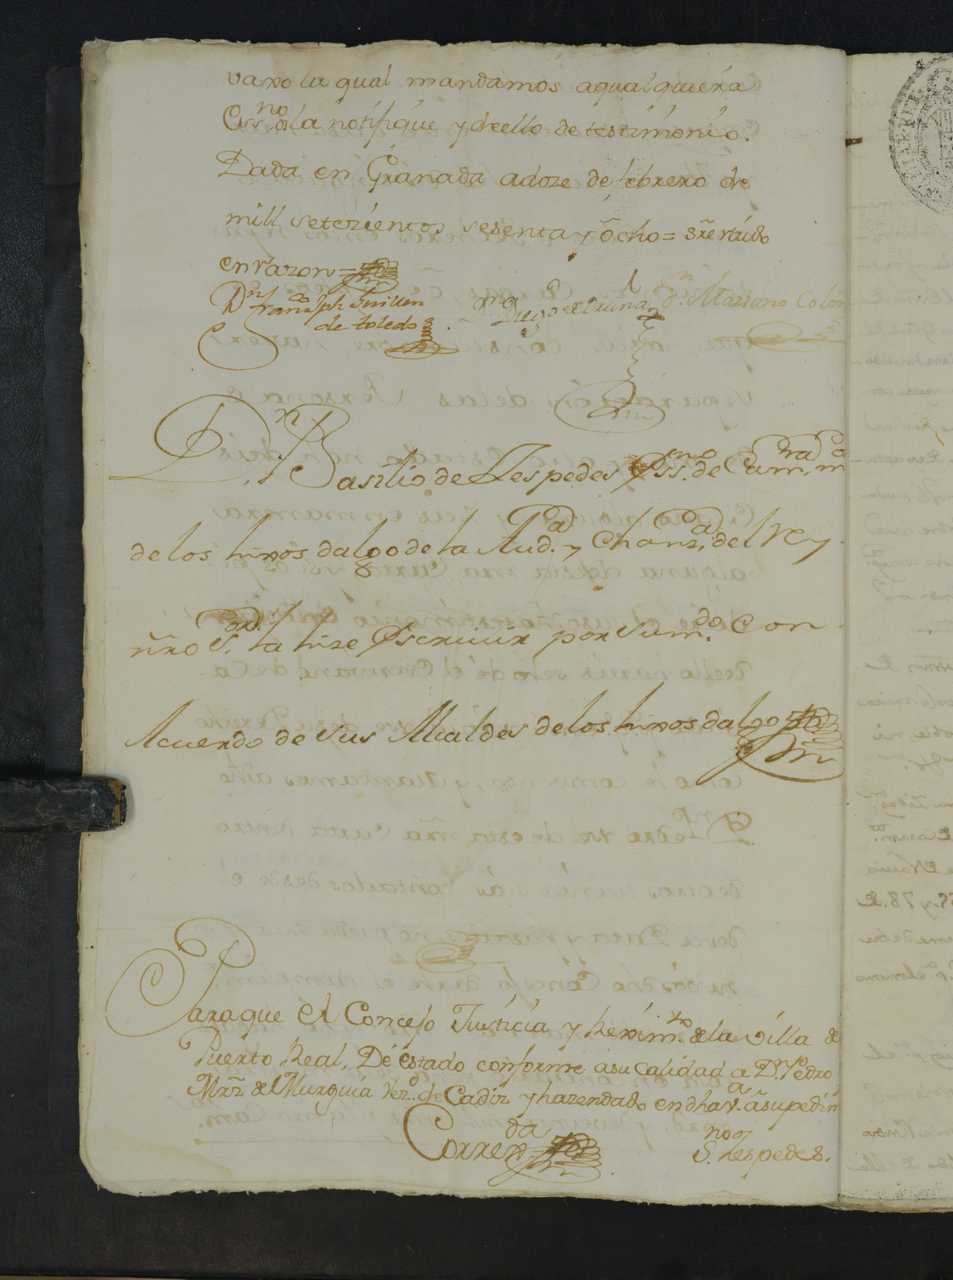 vaxo la qual mandamos aqualquiera
Essno. ôla nótifíque y deello de testímonío.
Dada en Granada adoze de febrero de
mill setezientos sesenta y ôcho =
en razon =
Dn. Franco. Jph. Guillen
de toledo
Dn. Mariano Colon
Dn. Basilio de Zespedes Essno. de Cam.ra m.or
de los hixosdalgo de la Aud.a y Chanz.a del Rey
nrõ S.or la hize Escriuir por su m.do Con
Acuerdo de sus Alcaldes de los hixos dalgo
Para que el Concejo Justícía y Rexim.to de la villa de
Puerto Real, Dé éstado conforme a su calidad a Dn. Pedro
Mrz̃ de Murguía Vez.o de Cadiz y hazendado en dha v.a â su pedim
Correxda.
S.no Zespedes.